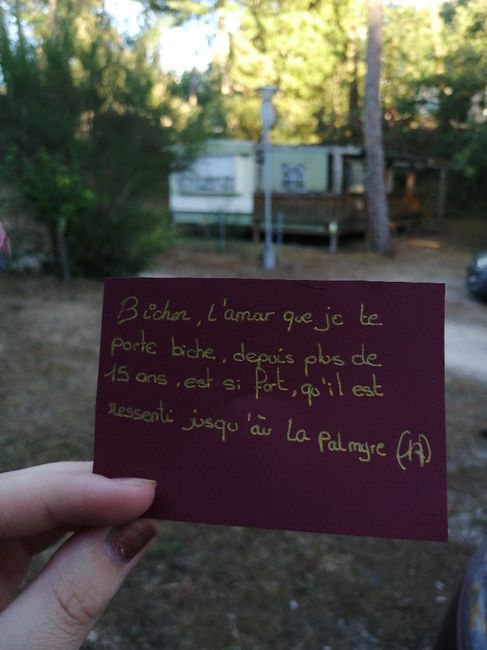 Bichon, l'amour que je te
porte biche, depuis plus de
15 ans, est si fort, qu'il est
ressenti jusqu'à La Palmyre (17)